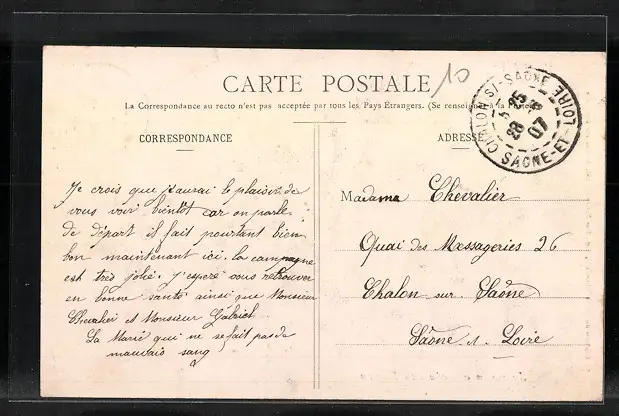 CARTE POSTALE
10
La Correspondance au recto n'est pas acceptée par tous les Pays Étrangers. (Se renseigner à la Poste)
CORRESPONDANCE
ADRESSE
CHALON S/-SAONE
25
28 -8
07
SAONE-ET-LOIRE
Je crois que j'aurai le plaisir de
vous voir bientôt car on parle
de départ il fait pourtant bien
bon maintenant ici. la campagne
est très jolie. j'espère vous retrouver
en bonne santé ainsi que Monsieur
Chevalier et Monsieur Gabriel
La Marie qui ne se fait pas de
mauvais sang
Madame Chevalier
Quai des Messageries 26
Chalon sur Saône
Saône et Loire